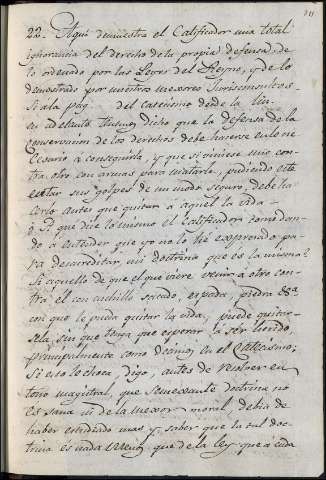 22. Aqui demuestra el Calificador una total
ignorancia del derecho de la propia defensa, de
lo ordenado por las Leyes del Reyno, y de lo
demostrado por nuestros mexores Jurisconsultos.
Si a la pag. del catecismo desde la lin-
ea adelante dicho que la defensa de la
conservacion de los derechos debe hacerse en lo ne-
cesario a conseguirla, y que si viniese uno con-
tra otro con armas para matarle, pudiendo este
evitar sus golpes de un modo seguro, debe ha-
cerlo antes que quitar a aquel la vida.
que dice lo mismo el Calificador dan-
do a entender que yo no lo he expresado pa-
ra desacreditar mi doctrina que es la misma?
Si aquello de que el que viere venir a otro con-
tra él con cuchillo sacado, espada, piedra &ª
con que le pueda quitar la vida, puede quitar-
sela sin que tenga que esperar á ser herido,
principalmente como decimos en el Catecismo;
Si eso le choca, digo, antes de resolver en
tono magistral, que semexante doctrina no
es sana ni de la mexor moral, debia de
haber estudiado mas y saber que la tal doc-
trina es nada menos que de la ley que a cada